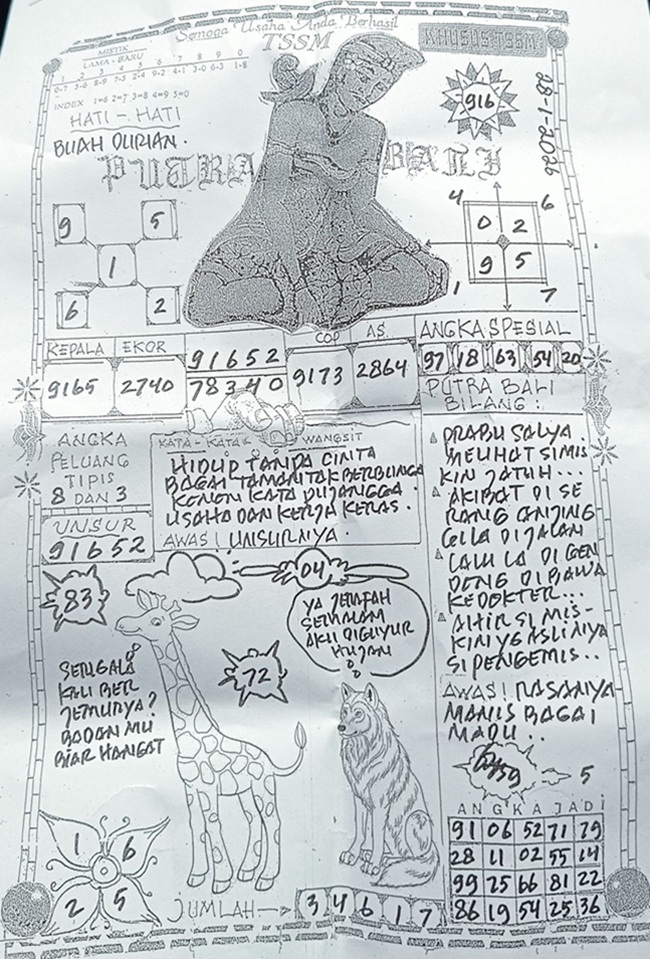 Semoga Usaha Anda Berhasil
TSSM
KHUSUS TSSM
MISTIK
LAMA - BARU
1 2 3 4 5 6 7 8 9 0
INDEX 1=6 2=7 3=8 4=9 5=0
HATI - HATI
BUAH DURIAN.
916
28-1-2026
PUTRA BALI
9 5
1
6 2
4 6
0 2
9 5
1 7
KEPALA EKOR
9165 2740
91652
78340
COP AS
9173 2864
ANGKA SPESIAL
97 18 63 54 20
ANGKA
PELUANG
TIPIS
8 DAN 3
UNSUR
91652
KATA - KATA WANGSIT
HIDUP TANPA CINTA
BAGAI TAMAN TAK BERBUNGA
KONON KATA PUJANGGA.
USAHA DAN KERJA KERAS.
AWAS! UNSURNYA.
PUTRA BALI
BILANG:
PRABU SALYA.
MELIHAT SI MIS
KIN JATUH...
AKIBAT DI SE
RANG ANJING
GILA DI JALAN
LALU IA DI GEN
DONG DI BAWA
KEDOKTER...
AHIR SI MIS-
KIN YG ASLINYA
SI PENGEMIS..
AWAS! RASANYA
MANIS BAGAI
MADU..
83
04
YA JERAFAH
SEMALAM
AKU DIGUYUR
HUJAN
72
SENGAJA
KAU BER
JEMURYA?
BADAN MU
BIAR HANGAT
59
5
1 6
2 5
JUMLAH
3 4 6 1 7
ANGKA JADI
91 06 52 71 79
28 11 02 55 14
99 25 66 81 22
86 19 54 25 36